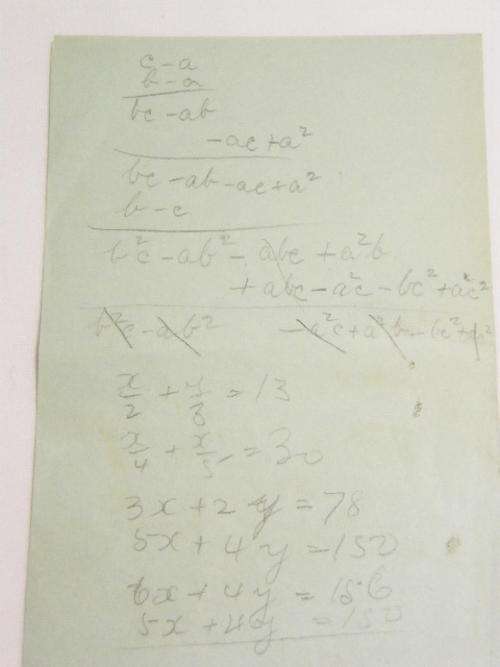 c - a
b - a
bc - ab
- ac + a²
bc - ab - ac + a²
b - c
b²c - ab² - abc + a²b
+ abc - a²c - bc² + ac²
b²c - ab² - a²c + a²b - bc² +
x/2 + y/3 = 13
x/4 + x/5 = 30
3x + 2y = 78
5x + 4y = 150
6x + 4y = 156
5x + 4y = 150